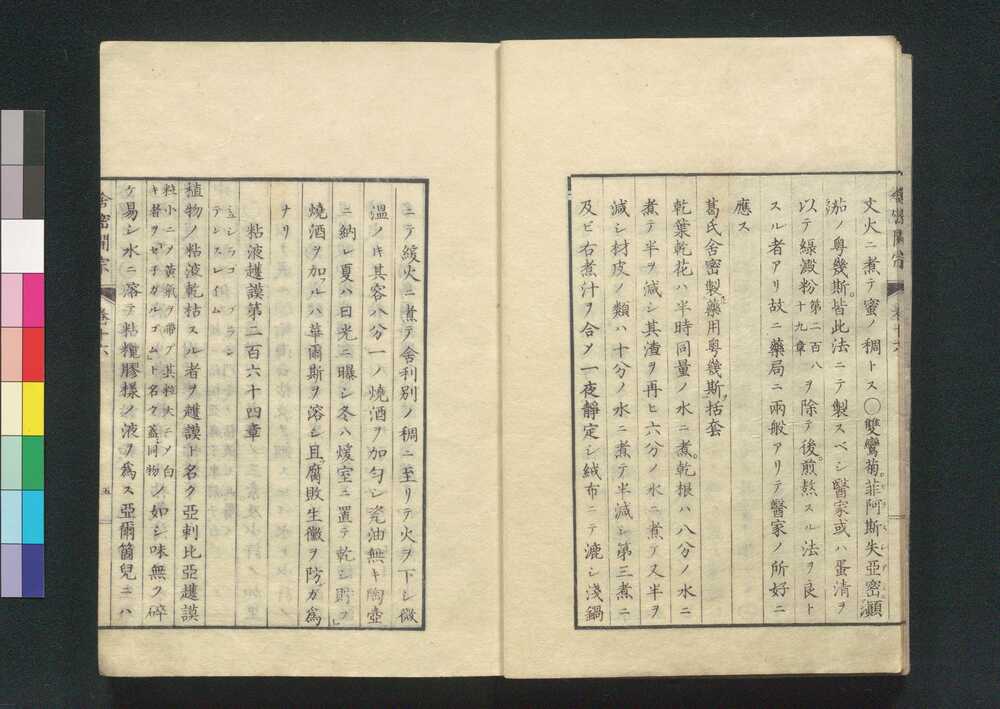 丈火ニ煮テ蜜ノ稠トス○雙鸞菊菲阿斯失亞密顛
茄ノ粤幾斯皆此法ニテ製スベシ醫家或ハ蛋清ヲ
以テ綠澱粉第二百八十九章ヲ除テ後煎熬スル法ヲ良ト
スル者アリ故ニ藥局ニ兩般アリテ醫家ノ所好ニ
應ス
葛氏舍密製藥用粤幾斯括套
乾葉乾花ハ半時同量ノ水ニ煮乾根ハ八分ノ水ニ
煮テ半ヲ減シ其渣ヲ再ヒ六分ノ水ニ煮テ又半ヲ
減シ材皮ノ類ハ十分ノ水ニ煮テ半減シ第三煮ニ
及ビ右煮汁ヲ合メ一夜靜定シ絨布ニテ漉シ淺鍋
舍密開宗
卷十六
ニテ緩火ニ煮テ舍利別ノ稠ニ至リテ火ヲ下シ微
溫ノキ其容八分一ノ燒酒ヲ加勻シ瓷油無キ陶壺
ニ納レ夏ハ日光ニ曝シ冬ハ煖室ニ置テ乾シ貯フ
燒酒ヲ加フルハ華爾斯ヲ溶シ且腐敗生黴ヲ防ガ爲
ナリ
粘液護謨第二百六十四章
植物ノ粘液乾枯スル者ヲ護謨ト名ク亞剌比亞護謨
粒小ニメ黃氣ヲ帶ブ其粒大ニメ白キ者ヲ「セ子ガルゴム」ト名ク蓋同物
如シ味無ク碎
ケ易シ水ニ溶テ粘糨膠樣ノ液ヲ爲ス亞爾箇兒ニハ
舍密開宗
卷十六
五